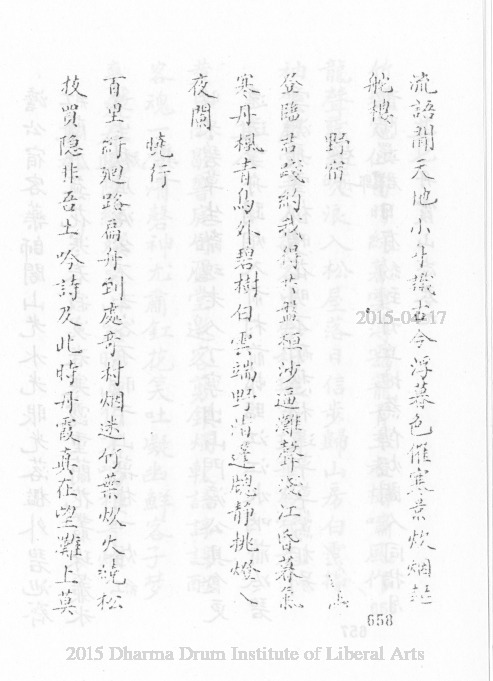 流語閒天地小牛機古今浮暮色催寒景炊烟起
舵樓
野宿
登臨古磴約我得共盤桓沙逼灘聲淺江昏暮氣
寒丹楓青鳥外碧樹白雲端野渚蓬牕靜挑燈入
夜闌
曉行
百里紆廻路扁舟到處奇村烟迷竹葉炊火曉松
枝買隱非吾土吟詩及此時丹霞真在望灘上莫
658
2015-04-17
2015 Dharma Drum Institute of Liberal Arts